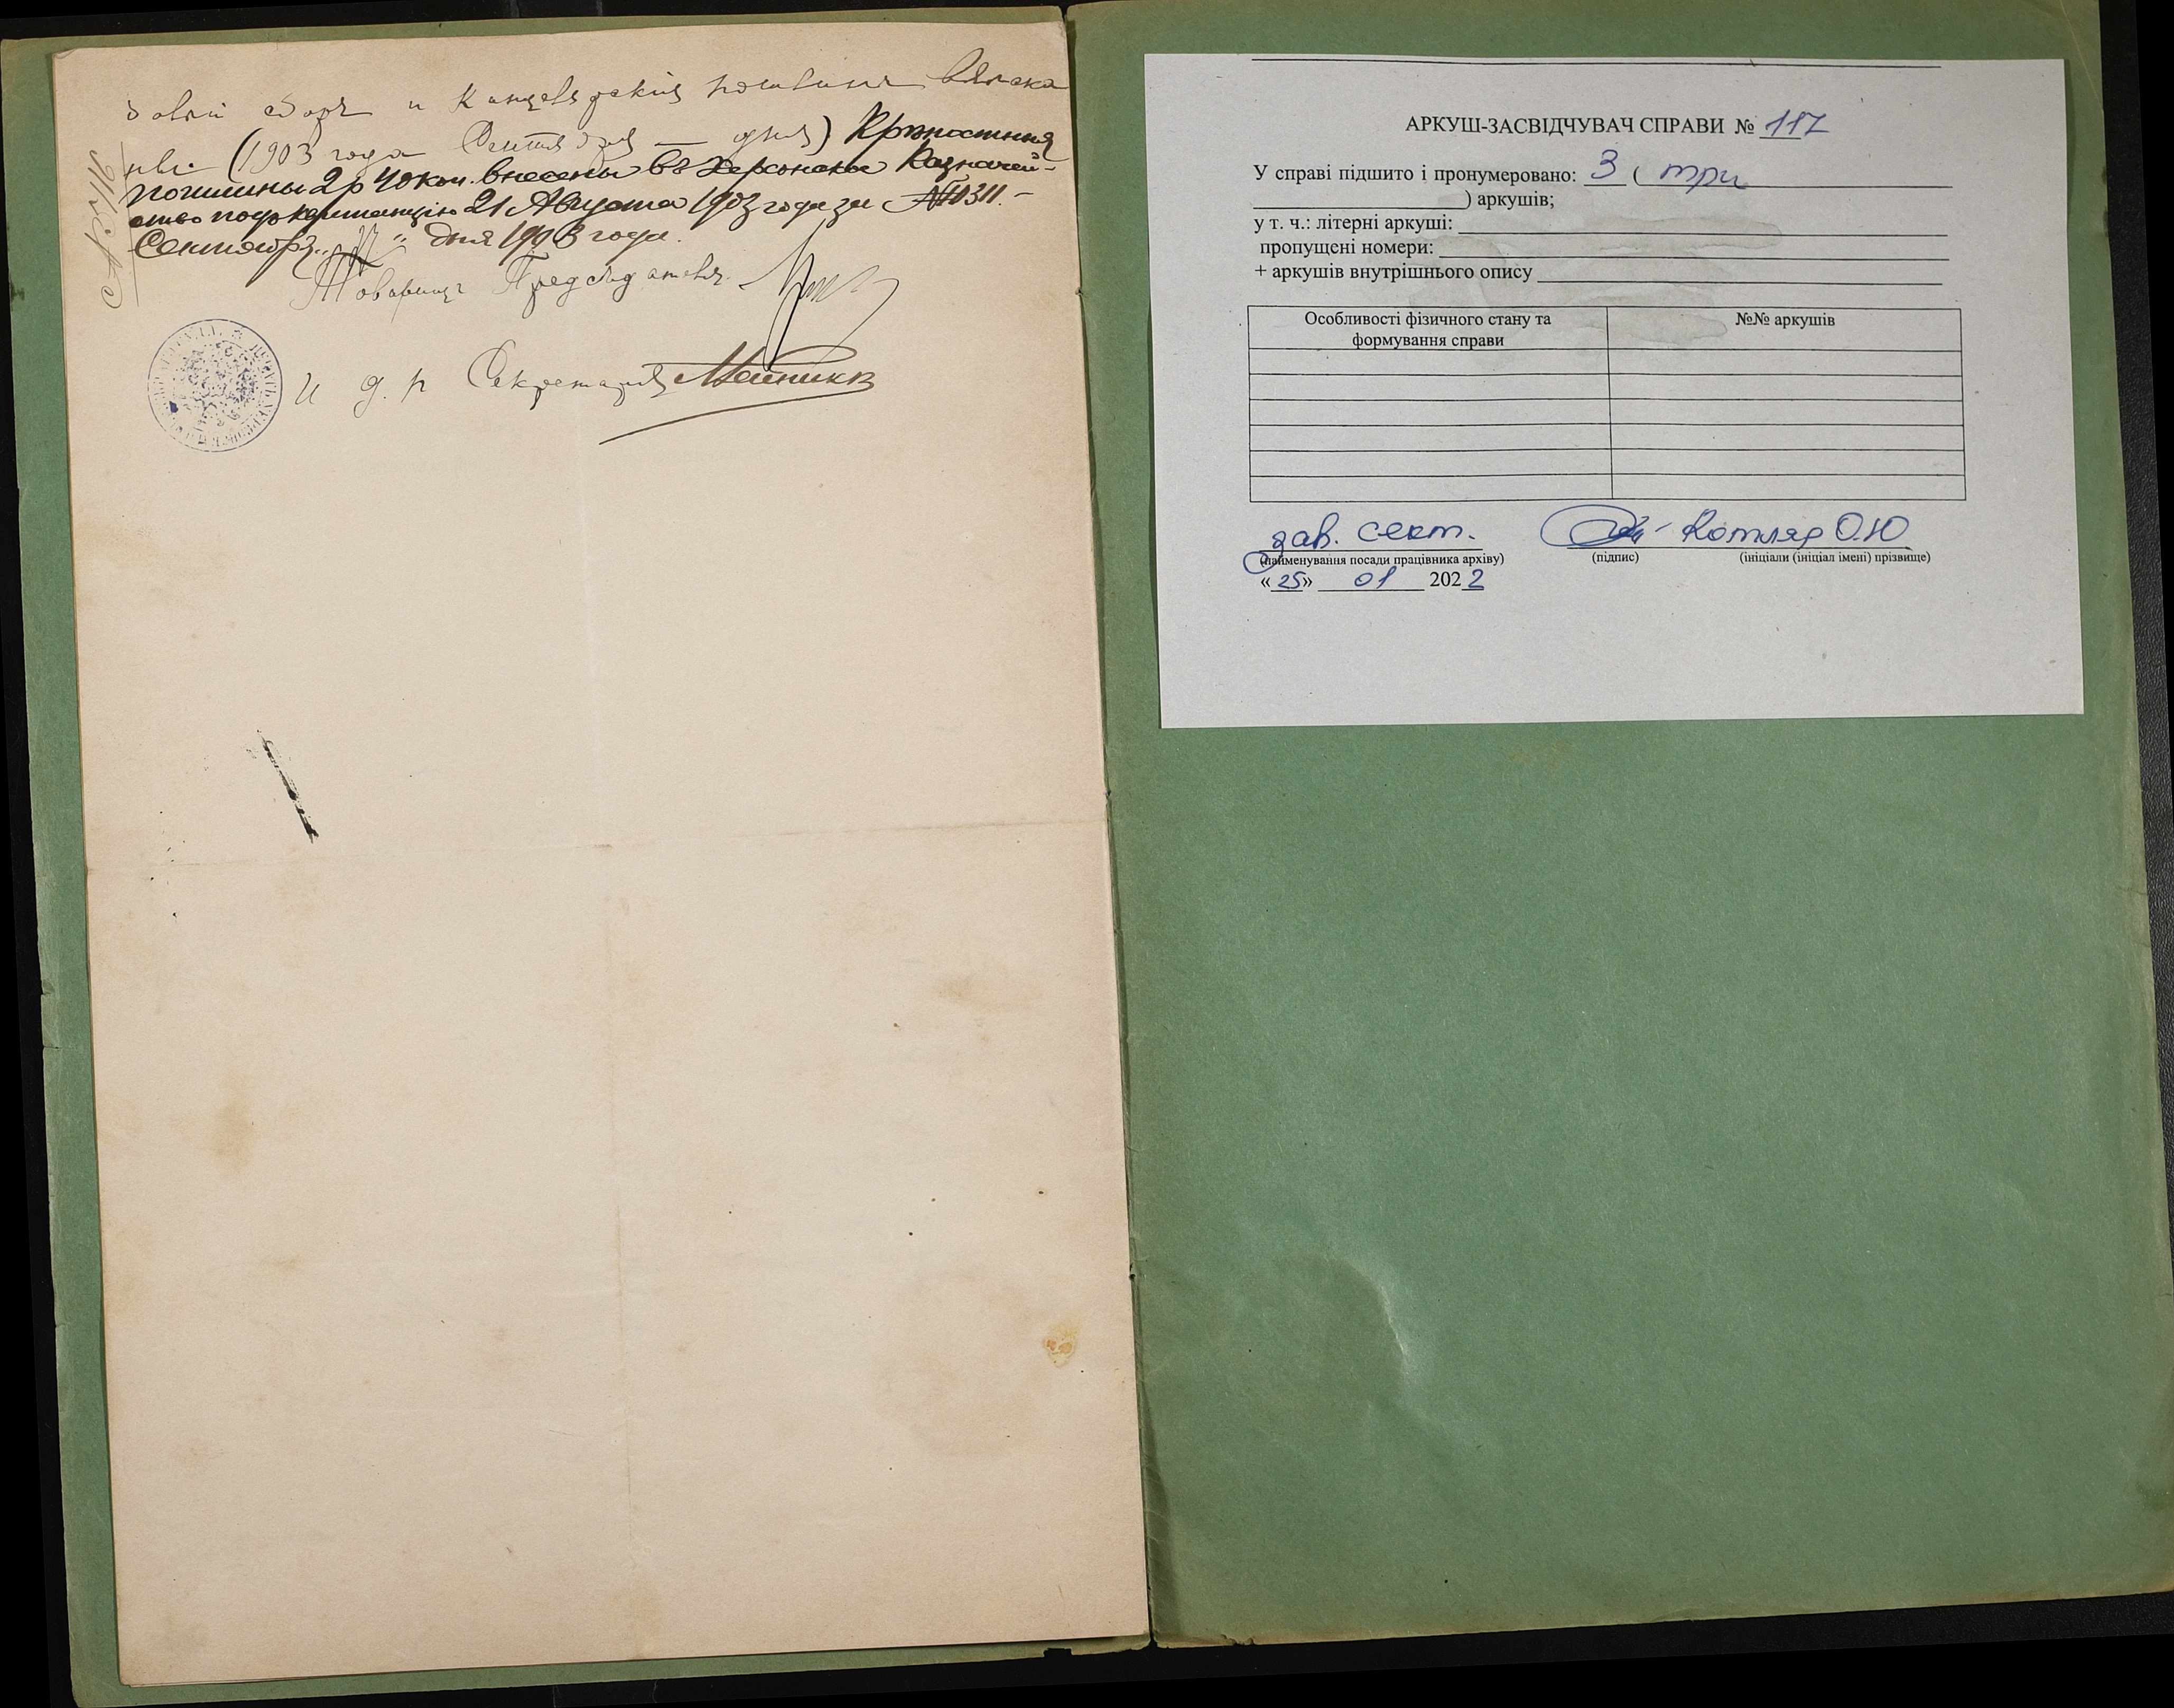 бовый сборъ и Канцелярскія пошлины взыска
ны. (1903 года Сентября — дня) Крѣпостныя
пошлины 2 р 40 коп. внесены въ Херсонское Казначей-
ство подъ квитанцію 21 Августа 1903 года за № 10311.-
Сентября " дня 1903 года.
Товарищъ Предсѣдателя
И д. р Секретаря
АРКУШ-ЗАСВІДЧУВАЧ СПРАВИ № 117
У справі підшито і пронумеровано: 3 ( три
) аркушів;
у т. ч.: літерні аркуші:
пропущені номери:
+ аркушів внутрішнього опису
Особливості фізичного стану та формування справи №№ аркушів
зав. сект. Котляр О.Ю
(найменування посади працівника архіву) (підпис) (ініціали (ініціал імені) прізвище)
« 25» 01 2022